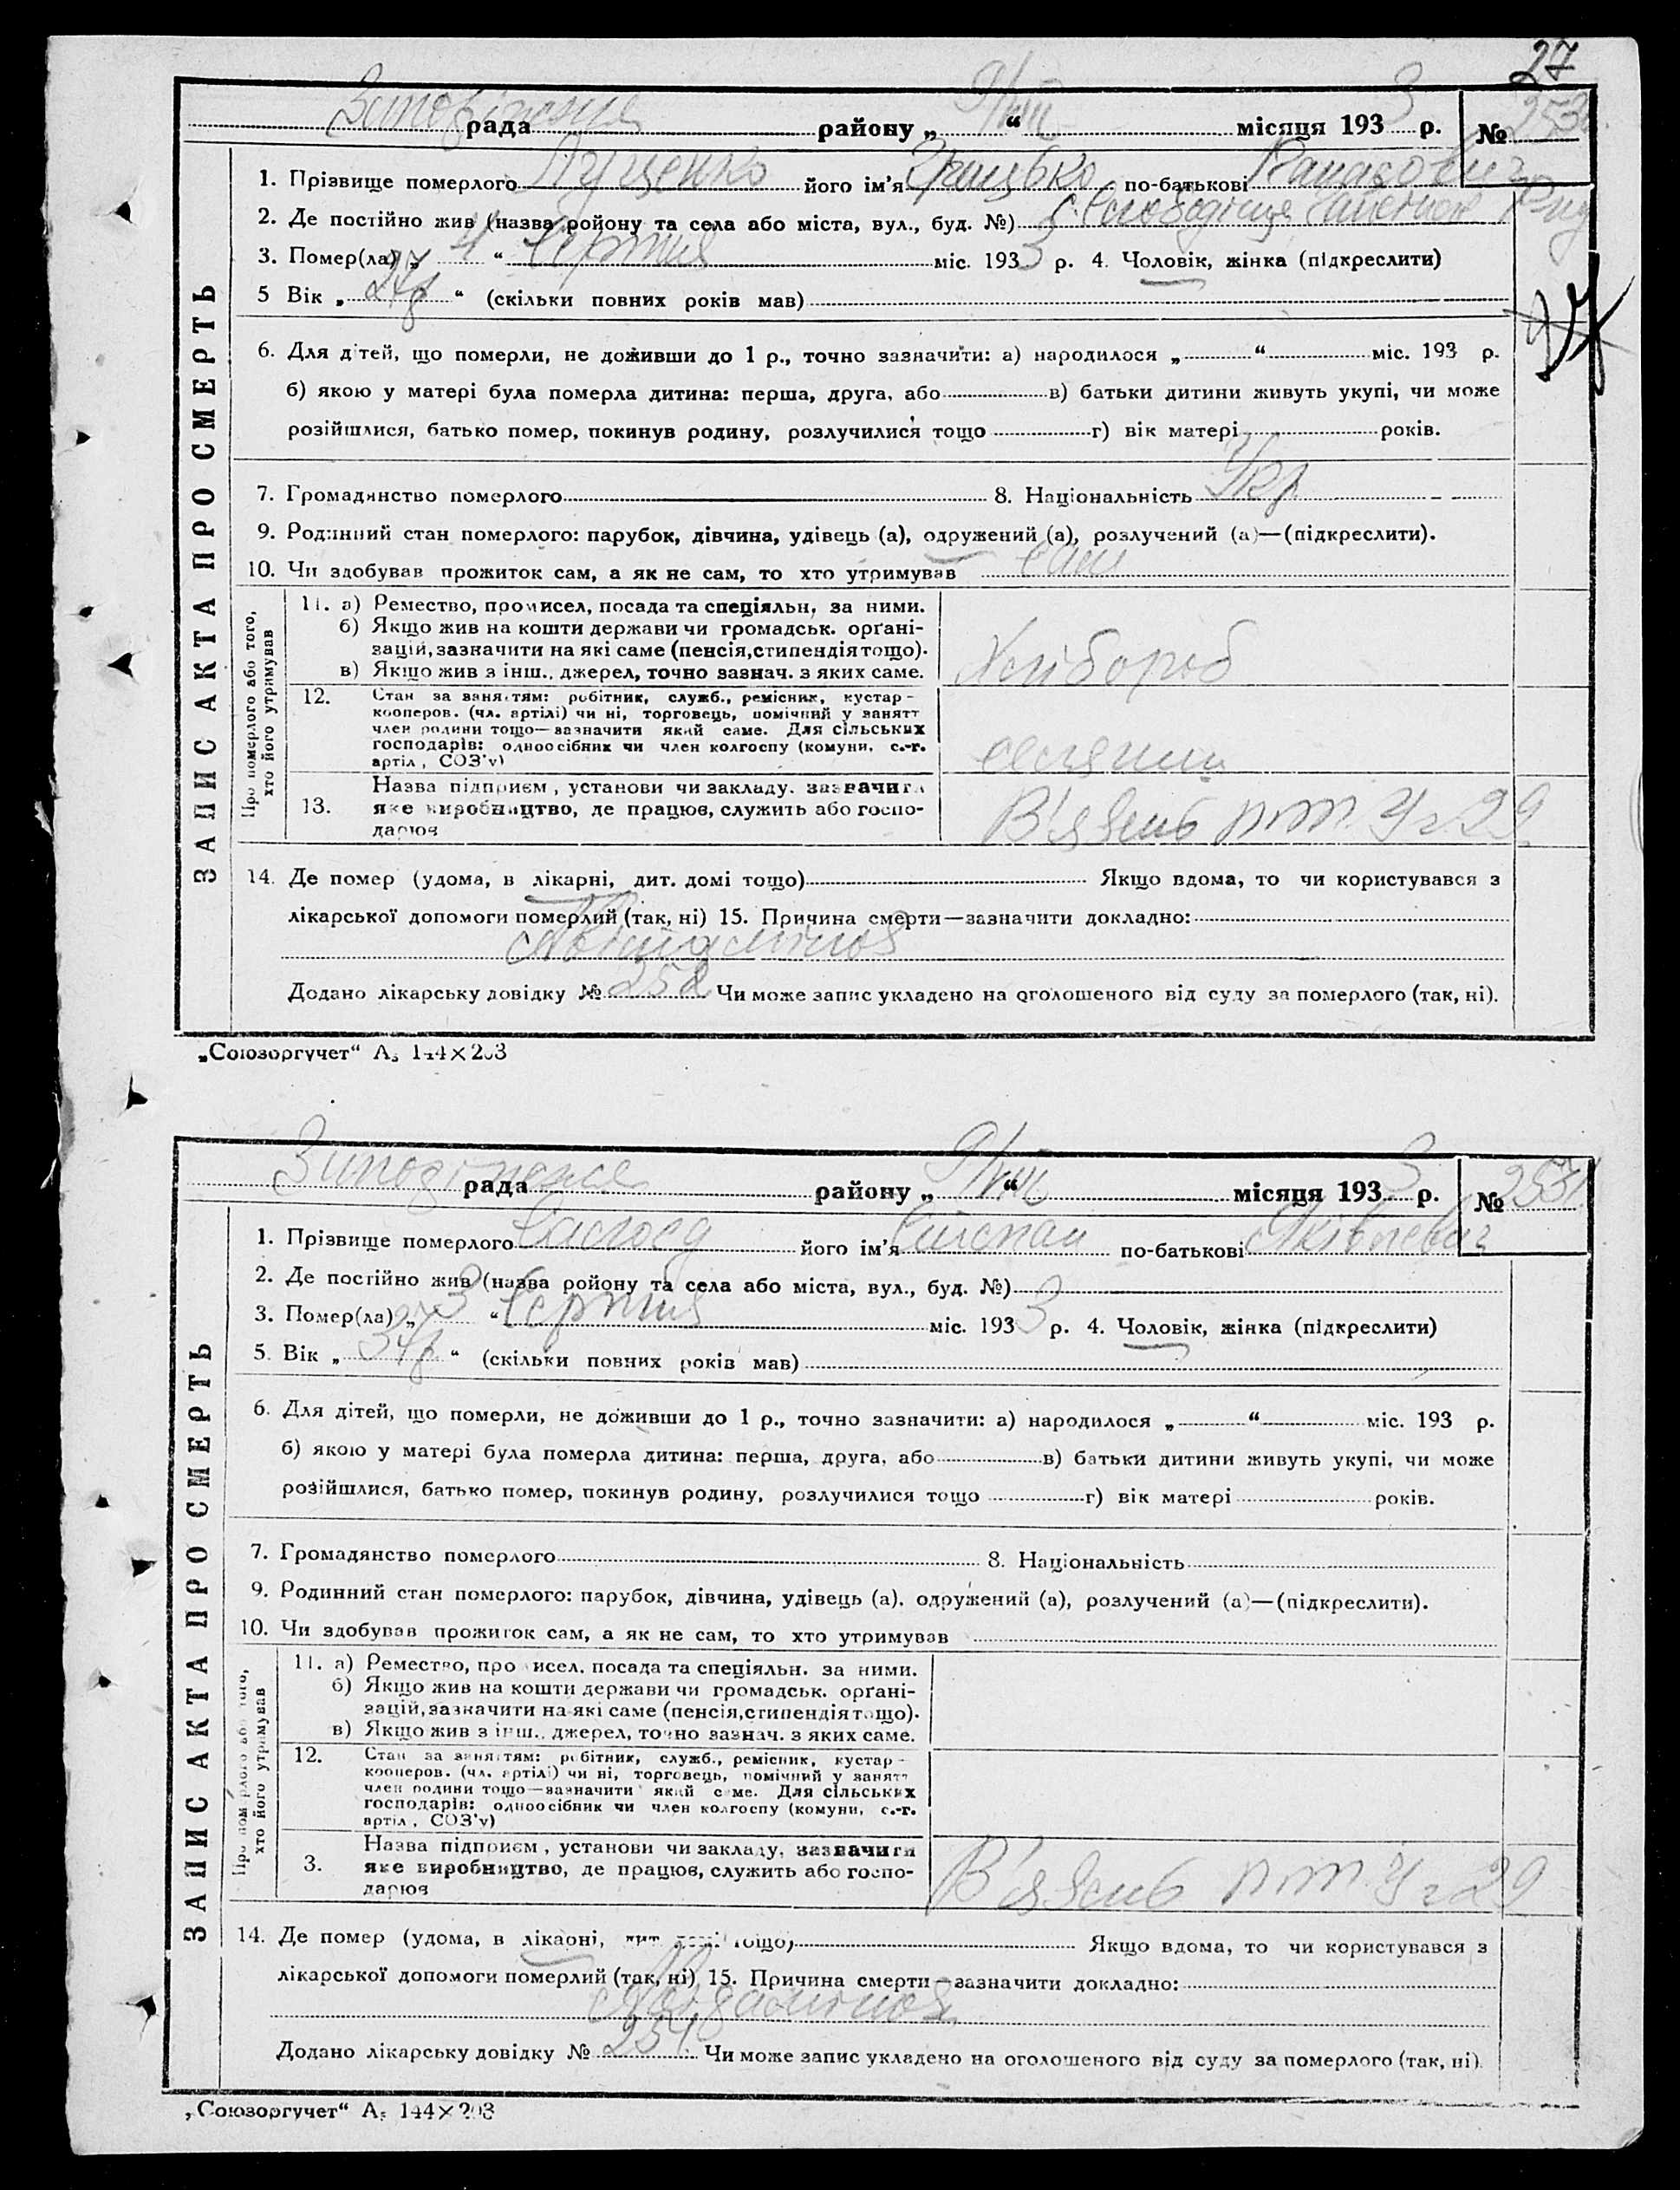 27
рада району „ 9/VIII “ місяця 193 3 р. № 253
1. Прізвище померлого Луценко його ім’я Грицько по-батькові Панасович
2. Де постійно жив (назва ройону та села або міста, вул., буд. №) с.
3. Помер(ла) „ 4 “ Серпня міс. 193 3 р. 4. Чоловік, жінка (підкреслити)
5 Вік „ 27р “ (скільки повних років мав)
27
6. Для дітей, що померли, не доживши до 1 р., точно зазначити: а) народилося „ “ міс. 193 р.
б) якою у матері була померла дитина: перша, друга, або в) батьки дитини живуть укупі, чи може
розійшлися, батько помер, покинув родину, розлучилися тощо г) вік матері років.
7. Громадянство померлого 8. Національність Укр
9. Родинний стан померлого: парубок, дівчина, удівець (а), одружений (а), розлучений (а)—(підкреслити).
10. Чи здобував прожиток сам, а як не сам, то хто утримував сам
ЗАПИС АКТА ПРО СМЕРТЬ
Про померлого або того, хто його утримував
11. а) Ремество, промисел, посада та спеціяльн, за ними.
б) Якщо жив на кошти держави чи громадськ. орґані-
зацій, зазначити на які саме (пенсія, стипендія тощо).
в) Якщо жив з інш., джерел, точно зазнач. з яких саме.
Хлібороб
12. Стан за заняттям: робітник, служб., ремісник, кустар -
кооперов. (чл. артілі) чи ні, торговець, помічний у занятт
член родини тощо—зазначити який саме. Для сільських
господарів: одноосібник чи член колгоспу (комуни, с.-г.
артіл, СОЗ’у)
селянин
13. Назва підприєм, установи чи закладу. зазначити
яке виробництво, де працює, служить або госпо-
дарює
В’язень п.т.У 29
14. Де помер (удома, в лікарні, дит. домі тощо) Якщо вдома, то чи користувався з
лікарської допомоги померлий (так, ні) 15. Причина смерти—зазначити докладно:
Авітаміноз
Додано лікарську довідку № 252 Чи може запис укладено на оголошеного від суду за померлого (так, ні).
„Союзоргучет“ А5 144×203
рада району „ 9/VIII “ місяця 193 3 р. № 2531
1. Прізвище померлого його ім’я Степан по-батькові Яківлевич
2. Де постійно жив (назва ройону та села або міста, вул., буд. №)
3. Помер(ла) „ 3 “ Серпня міс. 193 3 р. 4. Чоловік, жінка (підкреслити)
5. Вік „ 34р “ (скільки повних років мав)
6. Для дітей, що померли, не доживши до 1 р., точно зазначити: а) народилося „ “ міс. 193 р.
б) якою у матері була померла дитина: перша, друга, або в) батьки дитини живуть укупі, чи може
розійшлися, батько помер, покинув родину, розлучилися тощо г) вік матері років.
7. Громадянство померлого 8. Національність
9. Родинний стан померлого: парубок, дівчина, удівець (а). одружений (а), розлучений (а)—(підкреслити).
10. Чи здобував прожиток сам, а як не сам, то хто утримував
ЗАПИС АКТА ПРО СМЕРТЬ
Про померлого або того, хто його утримував
11. а) Ремество, промисел. посада та спеціяльн. за ними.
б) Якщо жив на кошти держави чи громадськ. орґані-
зацій, зазначити на які саме (пенсія, стипендія тощо).
в) Якщо жив з інш., джерел, точно зазнач. з яких саме.
12. Стан за заняттям: робітник, служб., ремісник, кустар -
кооперов. (чл. артілі) чи ні, торговець, помічний у занятт
член родини тощо—зазначити який саме. Для сільських
господарів: одноосібник чи член колгоспу (комуни, с.-г.
артіл, СОЗ’у)
3. Назва підприєм, установи чи закладу, зазначити
яке виробництво, де працює, служить або госпо-
дарює
В’язень п.т.У 29
14. Де помер (удома, в лікарні, дит. домі тощо) Якщо вдома, то чи користувався з
лікарської допомоги померлий (так, ні) 15. Причина смерти—зазначити докладно:
Авітаміноз
Додано лікарську довідку № 254 Чи може запис укладено на оголошеного від суду за померлого (так, ні)
„Союзоргучет“ А5 144×203